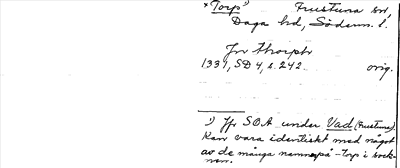 *Torp¹) Frustuna sn,
Daga hd, Söderm. l.
jn thorptr
1331, SD 4, s. 242. orig.
¹) Jfr SOA under Vad (Frustuna).
Kan vara identiskt med något
av de många namnen på -torp i sock-
nen.